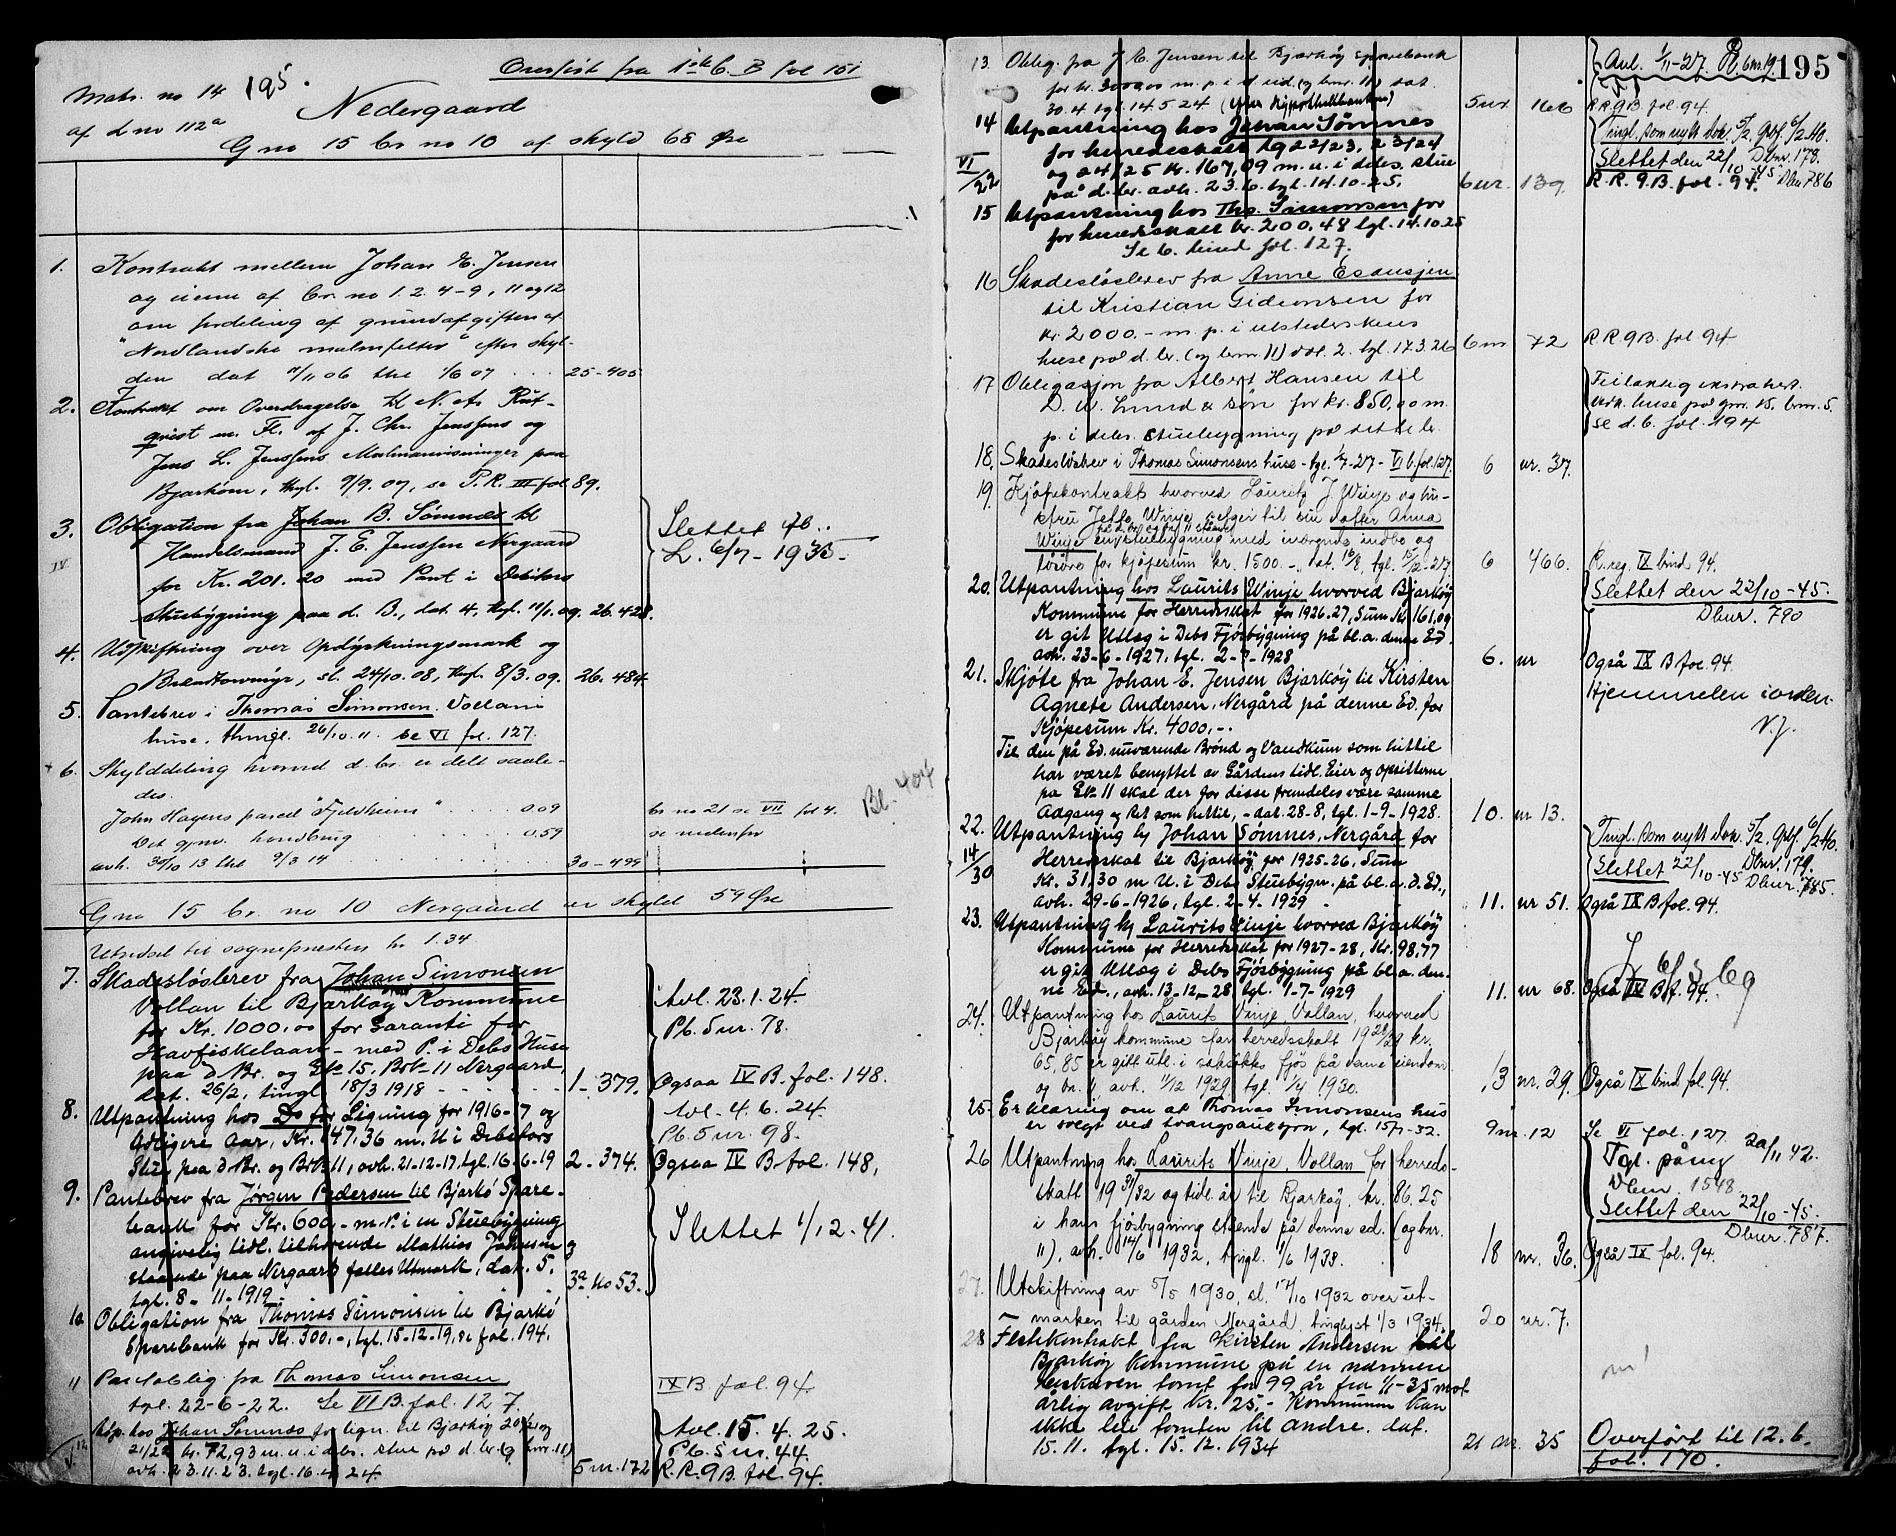 Overført fra 1ste b. B fol 151
Matr. no 14 195.
af d no 112a Nedergaard
G no 15 br no 10 af skyld 68 Øre
1. Kontrakt mellem Johan E. Jensen
og eierne af br. no 1. 2. 4-9, 11 og 12
om fordeling af grundafgiften af
"Nordlandske malmfelter" efter skyl-
den dat 9/11 06 thl 1/6 07 25-405
2. Kontrakt om Overdragelse til N. A.
qvist m. Fl. af J. Chr. Jenssens og
Jens L. Jenssens Malmanvisninger paa
Bjarkøen, thgl. 9/9. 07, se P. R. III fol 89.
3. Obligation fra Johan B. Sømnes til
IV.
Handelsmand J. E. Jenssen Nergaard
for Kr. 201.20 med Pant i Debitors
Stuebygning paa d. B., dat. 4, thgl. 11/1. 09. 26. 428.
Slettet
L. 6/7 - 1935.
4. Udskiftning over Opdyrkningsmark og
Brændtorvmyr, sl. 24/10. 08, thgl. 8/3. 09. 26. 484
5. Pantebrev i Thomas Simonsen Vollans
huse, thingl. 26/10. 11. se VI fol. 127.
6. Skylddeling hvorved d. br. er delt saale-
des.
John Hagens parcel "Fjeldheim" 0.09 br no 21 se VII fol 4.
Det gjenv. hovedbrug 0,59 se nedenfor
avh. 30/10 13 thl 9/3 14 30-499
Bl. 404
G no 15 br. no 10 Nergaard er skyld 59 Øre
Utsidsel til sognepresten kr 1.34
7. Skadesløsbrev fra Johan Simonsen
Vollan til Bjarkøy Kommune
for Kr. 1000,00 for Garanti for
Havfiskelaan - med P. i Debs Huse
paa d Br. og Gno 15, Brno 11 Nergaard,
dat. 26/2, tingl 18/3 1918 1-379.
Avl. 23.1.24.
Pb. 5 nr. 78.
Ogsaa IV B. fol. 148.
8. Utpantning hos Do for Ligning for 1916-17 og
tidligere Aar, Kr. 147.36 m. U i Debitors
Stue paa d Br. og Brno 11, avh. 21-12-17, tgl. 16-6-19 2-374.
Avl - 4. 6. 24.
Pb. 5 nr. 98.
Ogsaa IV B. fol. 148,
9. Pantebrev fra Jørgen Pedersen til Bjarkø Spare-
bank for Kr. 600,- m. P. i en Stuebygning
angivelig tidl. tilhørende Mathias Johnsen og
staaende paa Nergaard fælles Utmark, dat. 5,
tgl. 8-11-1919 3a No 53.
Slettet 1/12-41.
10 Obligation fra Thomas Simonsen til Bjarkø
Sparebank for Kr. 300,-, tgl. 15-12-19, se fol. 194.
11 Pantoblig fra Thomas Simonsen
tgl. 22-6-22. Se VI B. fol. 127.
IX B fol. 94
12 Utp. hos Johan Sømnes for lign. til Bjarkøy 20/21 og
21/22 kr. 72,93 m. u. i debs. stue på d. br. (og bnr. 11)
avh. 23.11.23. tgl. 16.4.24. 5 nr. 172
Avl. 15. 4. 25.
Pb. 5 nr. 44.
R. R. 9 B. fol 94.
13. Oblig. fra J E. Jensen til Bjarkøy Sparebank
for kr. 3000.00 m. p. i d eid. (og bnr. 11) dat.
30.4 tgl. 14.5 24 (efter Hypothekbanken) 5 nr. 166 R R 9 B fol. 94.
Avl. 1/11-27. 195
14 Utpantning hos Johan Sømnes
for herredsskatt 1922/23, 23/24
og 24/25 kr. 167,09 m. u. i debs. stue
VI/22
på d. br. avh. 23.6. tgl. 14.10-25. 6 nr. 139. R. R. 9 B. fol. 94.
Tingl. som nytt dok. 5/2 Gjbf. 6/2 40.
Dbnr. 178.
Slettet den 22/10-45 Dbnr 786
15 Utpantning hos Tho. Simonsen for
for herredsskatt kr. 200.48 tgl. 14.10.25
Se 6. bind fol. 127.
16 Skadesløsbrev fra Anne Esaiasen
til Kristian Gideonsen for
kr. 2000.- m. p. i utstederskens
huse på d. br. (og bnr. 11) dat. 2. tgl. 17.3.26 6 nr 72 R R 9 B. fol 94
17 Obligasjon fra Albert Hansen til
D. W. Lund & søn for kr. 850,00 m.
p. i debs. stuebygning på dette br.
Feilaktig ekstrahert.
Vedk. huse på gnr. 15. bnr. 5.
se d. b. fol. 194
18. Skadesløsbrev i Thomas Simonsens huse - tgl. 1/7-27 - VI b. fol. 127. 6 nr. 37.
19. Kjøpekontrakt hvorved Lauritz J. Winje og hu-
stru Jette Winje selger til sin datter Anna
Winje en stuebygning med iværende indbo og
løsøre for kjøpesum kr. 1500.-, dat. 16/8, tgl. 15/12-27 6 466. P. reg. IX bind 94.
20. Utpantning hos Laurits Winje hvorved Bjarkøy
Kommune for Herredsskat for 1926-27, Sum Kr. 161,09
er git Utlæg i Debs Fjøsbygning på bl. a. denne Ed.
avh. 23-6-1927, tgl. 2-7-1928 6. nr Også IX B fol. 94.
Slettet den 22/10-45.
Dbnr. 790
21. Skjøte fra Johan E. Jensen Bjarkøy til Kirsten
Agnete Andersen, Nergård på denne Ed. for
Kjøpesum Kr. 4000,-.
Hjemmelen i orden.
Til den på Ed. nuværende Brønd og Vandkum som hittil
har været benyttet av Gårdens tidl. Eier og Opsitterne
på Bno 11 skal der for disse fremdeles være samme
Adgang og Ret som hittil, - dat. 28-8, tgl. 1-9-1928. 10. nr 13.
22. Utpantning hj Johan Sømnes, Nergård for
14/30
Herredsskat til Bjarkøy for 1925-26, Sum
Kr. 31,30 m U. i Debs Stuebygn. på bl. a. d. Ed.,
avh. 29-6-1926, tgl. 2-4-1929 11. nr 51. Også IX B fol. 94.
Tingl. som nytt dok. 5/2, Gjbf 6/2 40.
Dbnr. 179.
Slettet 22/10-45 Dbnr. 785.
23. Utpantning hj Laurits Winje hvorved Bjarkøy
Kommune for Herredsskat for 1927-28, Kr. 98,77
er git Utlæg i Debs Fjøsbygning på bl. a. den-
ne Ed., avh. 13-12-28 tgl. 1-7-1929 11. nr 68. Også IX B f. 94.
24. Utpantning hos Laurits Vinje, Vollan, hvorved
Bjarkøy kommune for herredsskatt 1928/29 kr.
65,85 er gitt utl. i saksøktes fjøs på denne eiendom
og bn. 11 avh. 11/12 1929 tgl. 1/4 1930. 13 nr. 29. Også IX bind fol. 94.
25. Erklæring om at Thomas Simonsens hus
er solgt ved tvangsauksjon, tgl. 15/7-32. 9 nr. 12 Se VI fol. 127.
26 Utpantning hos Laurits Vinje, Vollan for herreds-
skatt 1931/32 og tidl. år til Bjarkøy, kr. 86.25
i hans fjøsbygning stående på denne ed. (og bnr.
11), avh. 14/6 1932, tingl. 1/6 1933. 18 nr. 36. Også IX fol. 94.
Tgl. påny 20/11 42.
Dbnr. 1548.
Slettet den 22/10-45.
Dbnr. 787.
27. Utskiftning av 5/5 1930, sl. 17/10 1932 over ut-
marken til gården Nergård, tinglyst 1/3 1934. 20 nr. 7.
28 Festekontrakt fra Kirsten Andersen til
Bjarkøy Kommune på en nærmere
beskreven tomt for 99 år fra 1/1-35 mot
årlig avgift Kr. 25,- Kommunen kan
ikke leie tomten til andre. dat.
15.11. tgl. 15.12.1934 21 nr. 35 Overført til 12. b.
fol. 170.